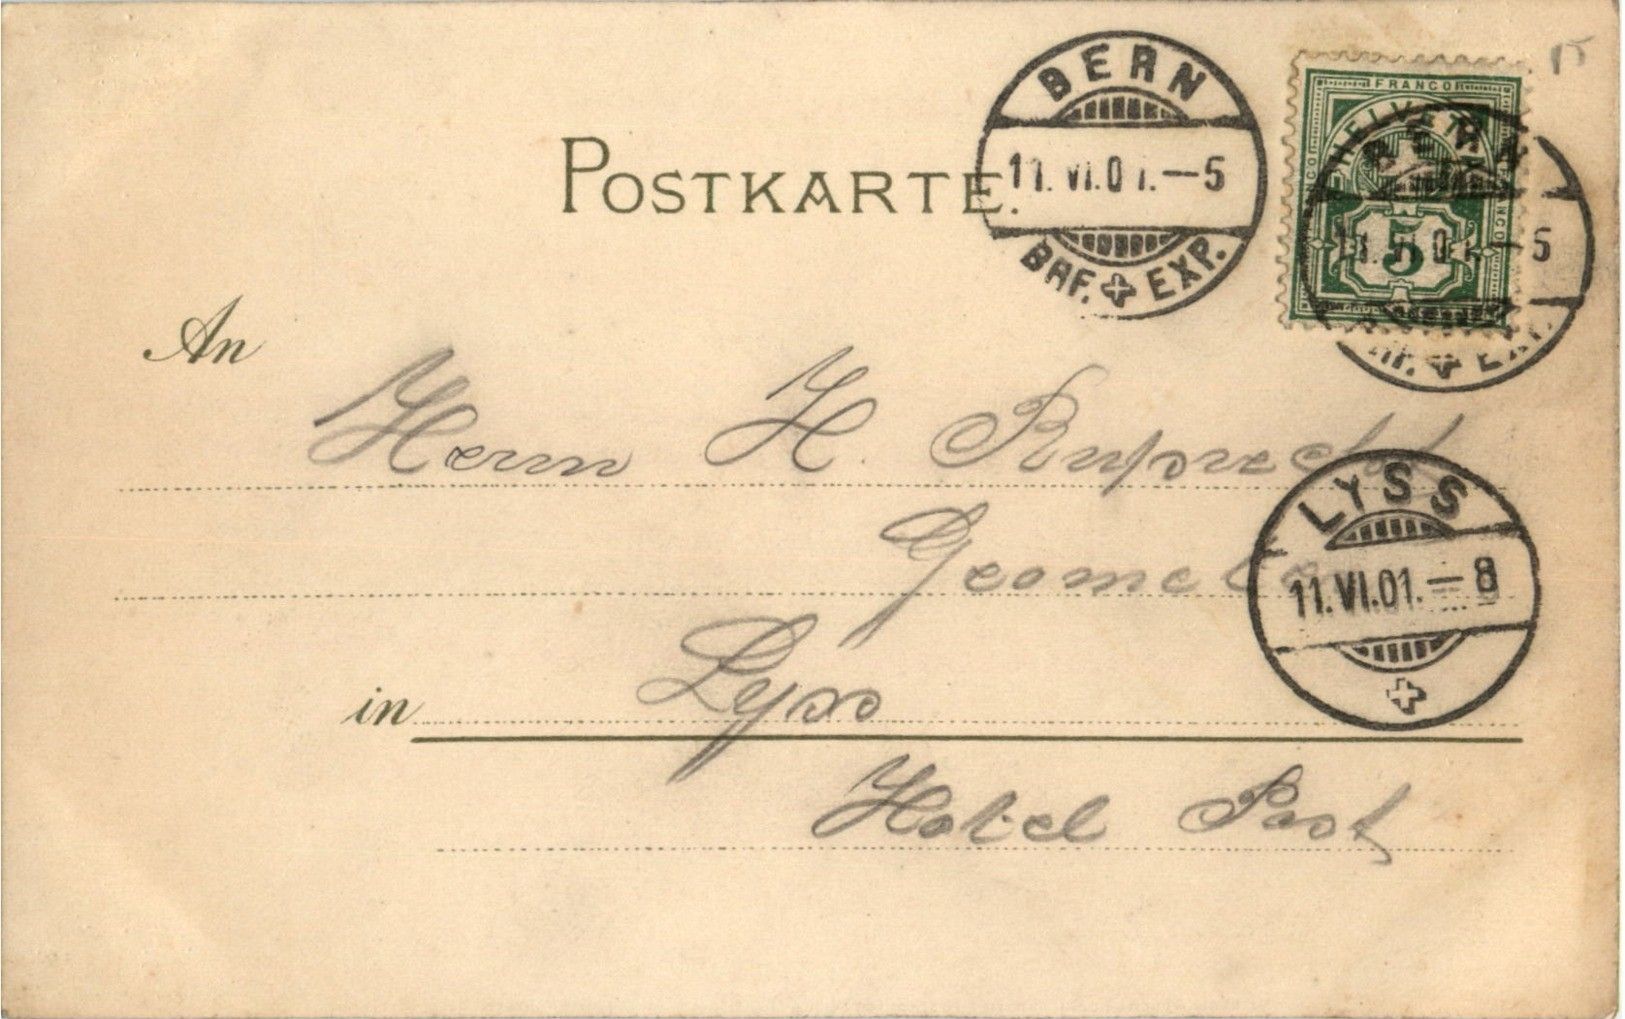 BERN
11.VI.01.—5
BRF. EXP.
FRANCO
HELVETIA
FRANCO
FRANCO
5
BERN
11.VI.01.—5
BRF. EXP.
POSTKARTE.
An
Herrn H. Ruprecht
Geometer
LYSS
11.VI.01.—8
in Lyss
Hotel Post
15